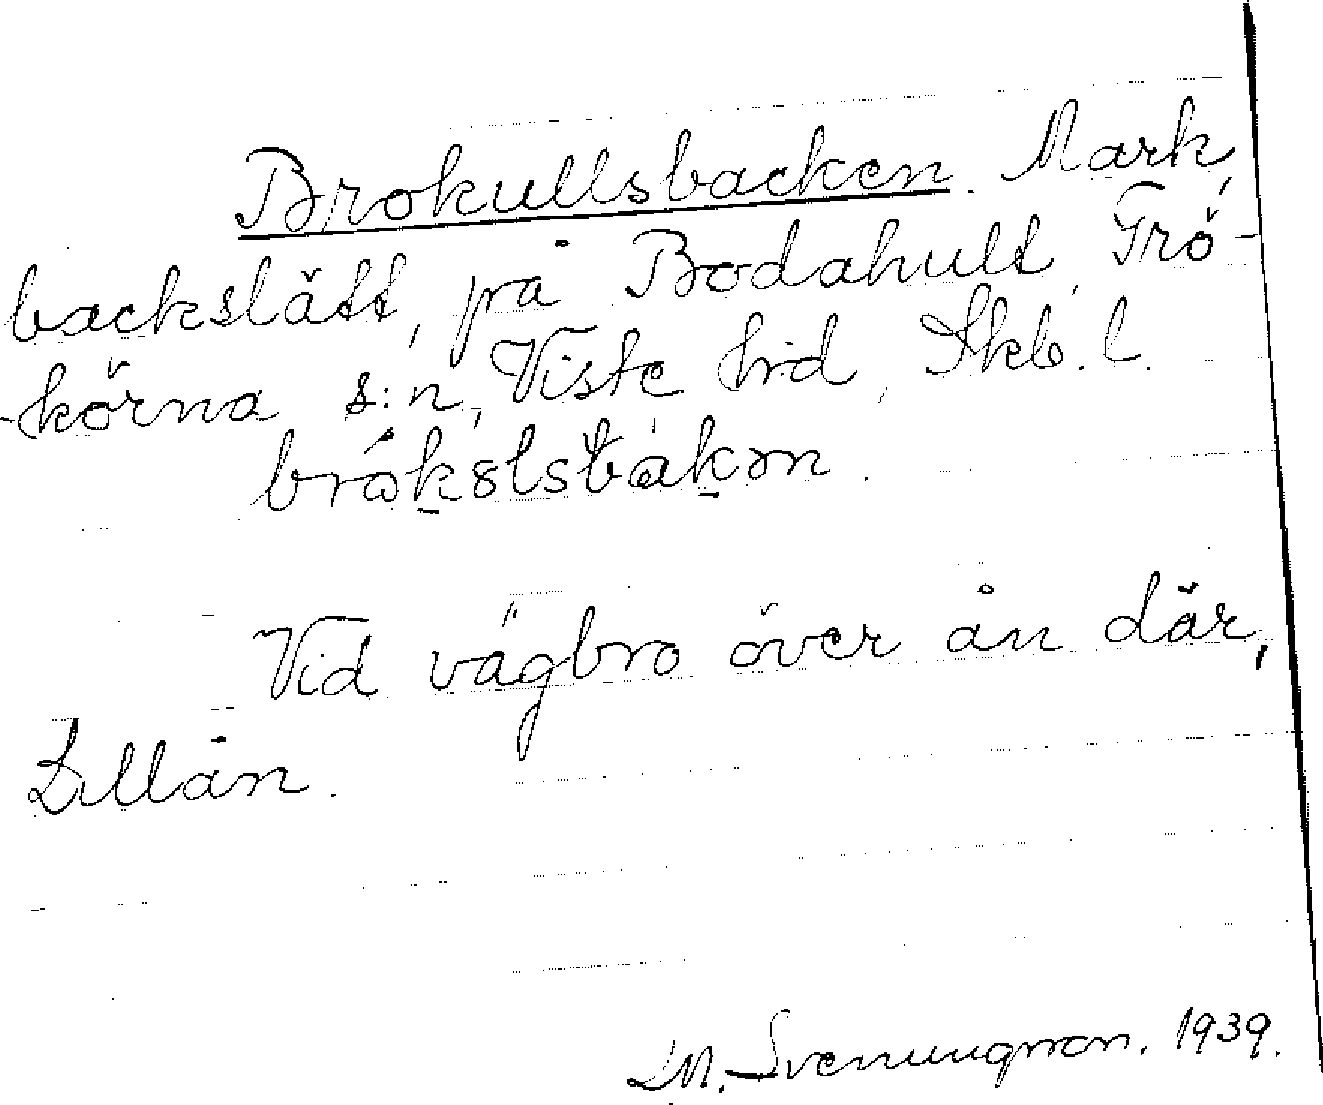 Brokullsbacken. Mark,
backslätt, på Bodahult, Frö-
körna s:n, Viste hd, Skb. l.
Vid vägbro över ån där,
Lillån.
M. Svenungsson. 1939.